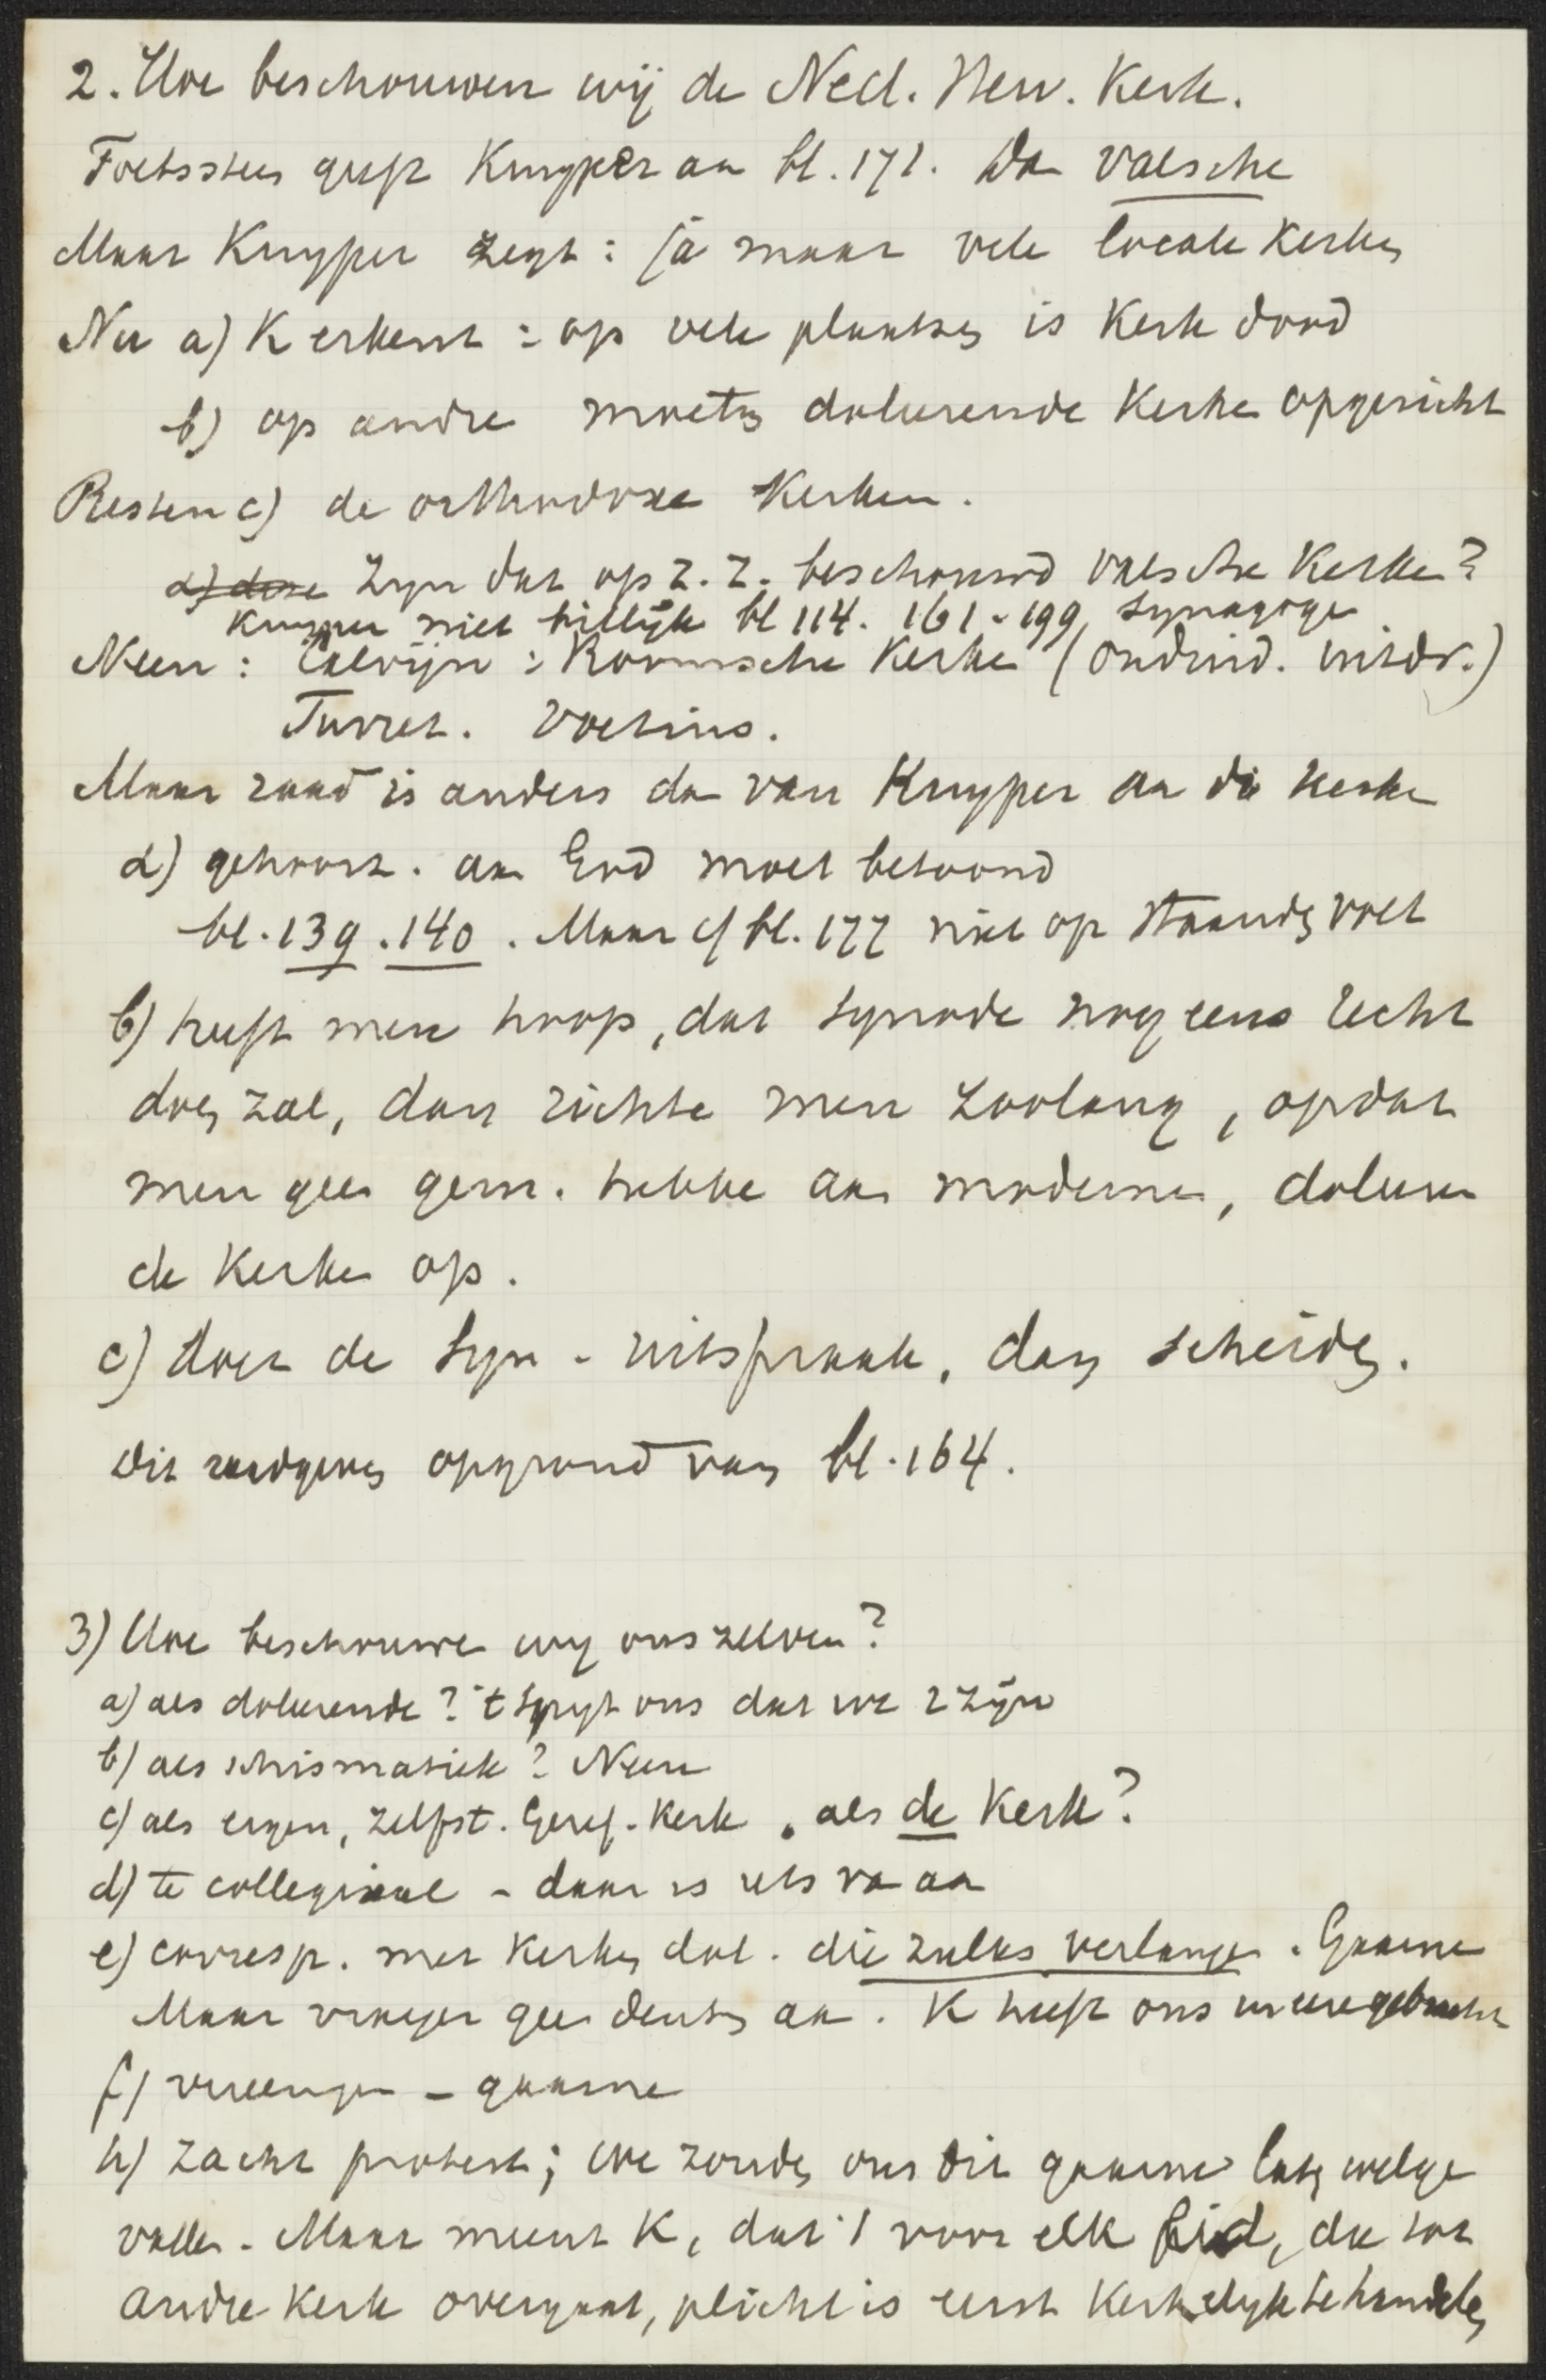 2. Hoe beschouwen wij de Ned. Herv. Kerk.
Toetssteen geeft Kuyper aan bl. 171. De valsche
Maar Kuyper zegt: ja maar vele locale kerken
Nu a) K erkent: op vele plaatsen is Kerk dood
b) op andre moeten doleerende Kerken opgericht
Resten c) de orthodoxe Kerken.
a) deze Zijn dat op z. z. beschouwd valsche Kerken?
Kuyper niet billijk bl 114. 161-199, synagoge
Neen: Calvijn: Roomsche Kerken (onderd. uitdr.)
Turret. Voetius.
Maar raad is anders dan van Kuyper aan die kerken
a) gehoorz. aan God moet betoond
bl. 139. 140. Maar cf bl. 177 niet op staanden voet
b) heeft men hoop, dat synode nog eens recht
doen zal, dan richte men zoolang, opdat
men geen gem. hebbe aan modernen, doleeren
de Kerken op.
c) doet de Syn. uitspraak, dan scheiden.
Dit raadgeven op grond van bl. 164.
3) Hoe beschouwen wij ons zelven?
a) als doleerende? 't Spijt ons dat we 't zijn
b) als schismatiek? Neen
c) als eigen, zelfst. Geref. Kerk, als de Kerk?
d) te collegiaal - daar is iets van aan
e) corresp. met Kerken dol. die zulks verlangen. Gaarne
Maar vroeger geen denken aan. K heeft ons weeregebracht
f) vereenigen - gaarne
h) zacht protest; we zouden ons dit gaarne laten welge
vallen. Maar meent K, dat 't voor elk lid, die tot
andre Kerk overgaat, plicht is eerst Kerkelijk te handelen